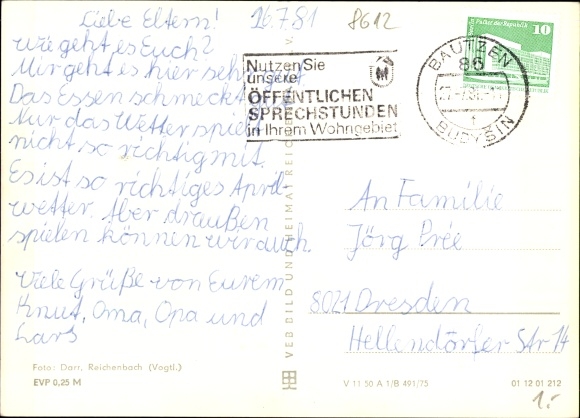 Liebe Eltern! 26.7.81 8612
wie geht es Euch?
Mir geht es hier sehr
Das Essen schmeckt
Nur das Wetter spielt
nicht so richtig mit.
Es ist so richtiges April-
wetter. Aber draußen
spielen können wir auch.
Viele Grüße von Eurem
Knut, Oma, Opa und
Lars
Foto: Darr, Reichenbach (Vogtl.)
EVP 0,25 M
VEB BILD UND HEIMAT REICHENBACH
Nutzen Sie
unsere
ÖFFENTLICHEN
SPRECHSTUNDEN
in Ihrem Wohngebiet
BAUTZEN
86
BUDYŠIN
Palast der Republik
10
An Familie
Jörg Prée
8021 Dresden
Hellendorfer Str 14
V 11 50 A 1/B 491/75
01 12 01 212
1.-